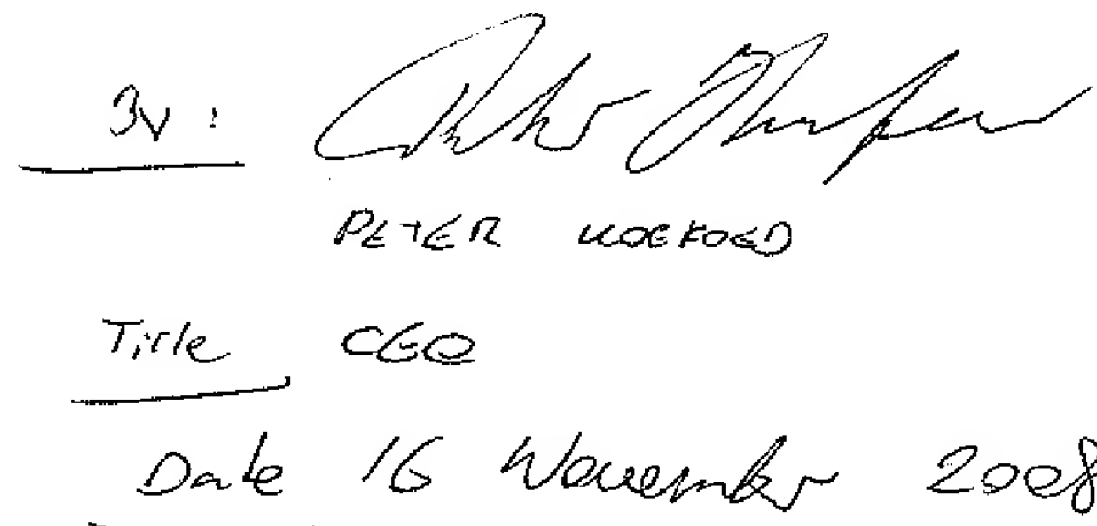 By :
PETER
Title CEO
Date 16 November 2008